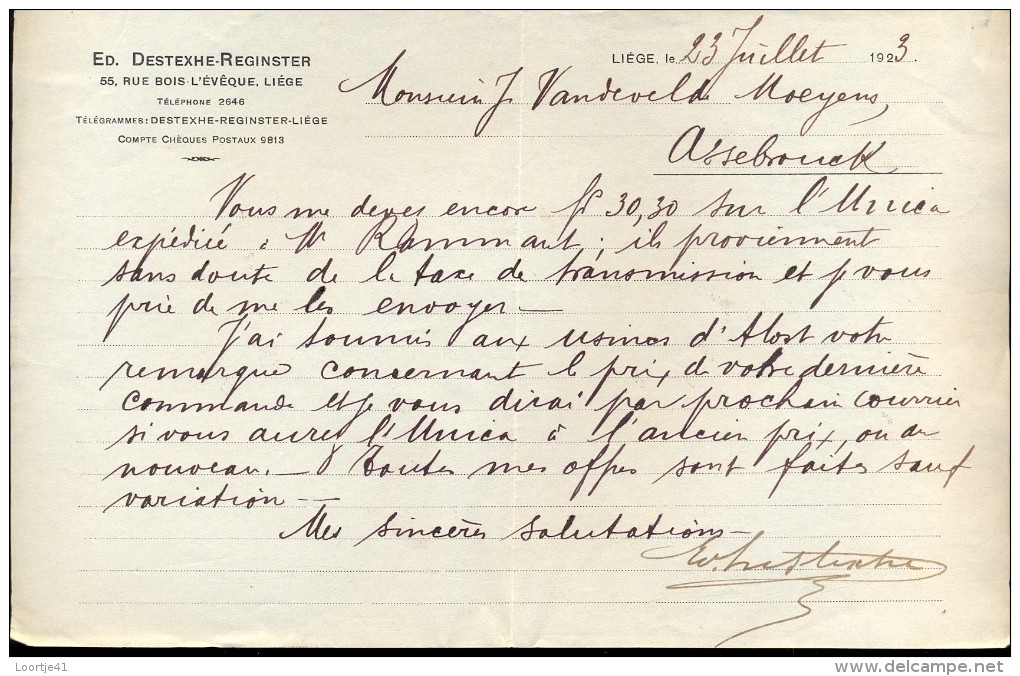 ED. DESTEXHE-REGINSTER
55, RUE BOIS-L'ÉVÊQUE, LIÉGE
TÉLÉPHONE 2646
TÉLÉGRAMMES: DESTEXHE-REGINSTER-LIÉGE
COMPTE CHÈQUES POSTAUX 9813
LIÉGE, le 23 Juillet 1923.
Monsieur J. Vandevelde Moeyens,
Assebrouck
Vous me devez encore fr 30,30 sur l'Unica
expédié à Mr Rammant; ils proviennent
sans doute de la taxe de transmission et je vous
prie de me les envoyer. —
J'ai soumis aux usines d'Alost votre
remarque concernant le prix de votre dernière
commande et je vous dirai par prochain courrier
si vous aurez l'Unica à l'ancien prix, ou du
nouveau. — Toutes mes offres sont faites sauf
variation. —
Mes sincères salutations —
Ed. Destexhe
Loortje41
www.delcampe.net